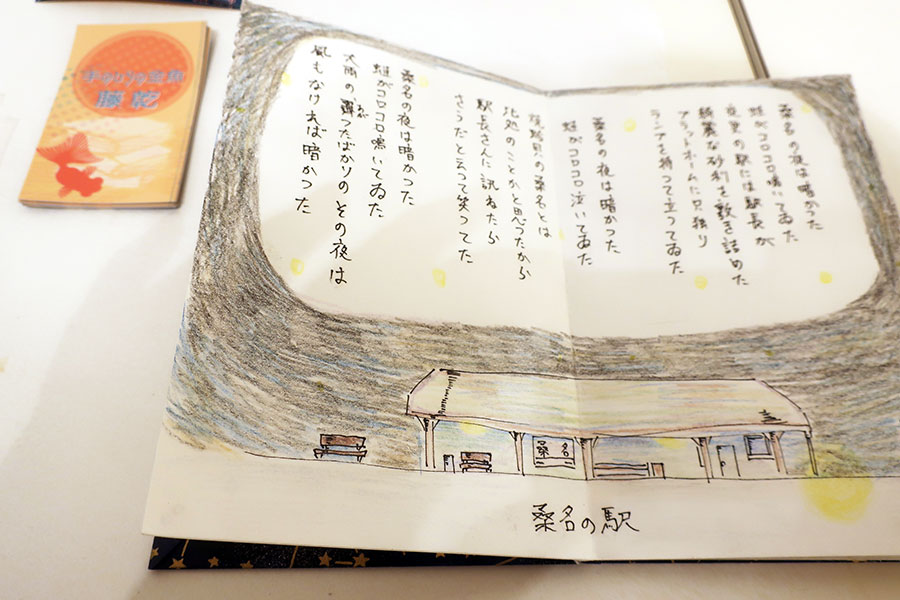 桑名の夜は暗かつた
蛙がコロコロ鳴いてゐた
夜更の駅には駅長が
綺麗な砂利を敷き詰めた
プラットホームに只独り
ランプを持つて立つてゐた
桑名の夜は暗かつた
蛙がコロコロ泣いてゐた
焼蛤貝の桑名とは
此処のことかと思つたから
駅長さんに訊ねたら
さうだと云つて笑つてた
桑名の夜は暗かつた
蛙がコロコロ鳴いてゐた
大雨の霽つたばかりのその夜は
風もなければ暗かつた
桑名
桑名の駅